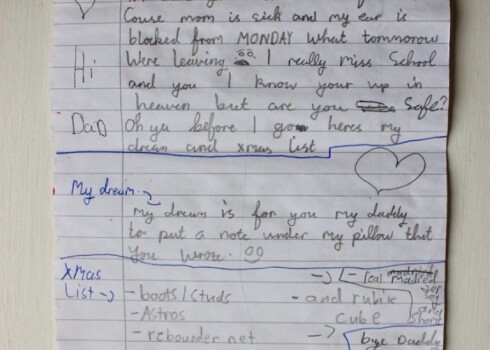 Couse mom is sick and my ear is
blocked from MONDAY what tommorow
Hi Were leaving I really miss School
and you I know your up in
heaven but are you safe?
DaD Oh ya before I go heres my
dream and xmas list
My dream
my dream is for you my daddy
to put a note under my pillow that
you wrote.
Xmas
List → - boots/studs
- Astros
- rebounder net
→ - real
- and rubix
cube
→ bye Daddy